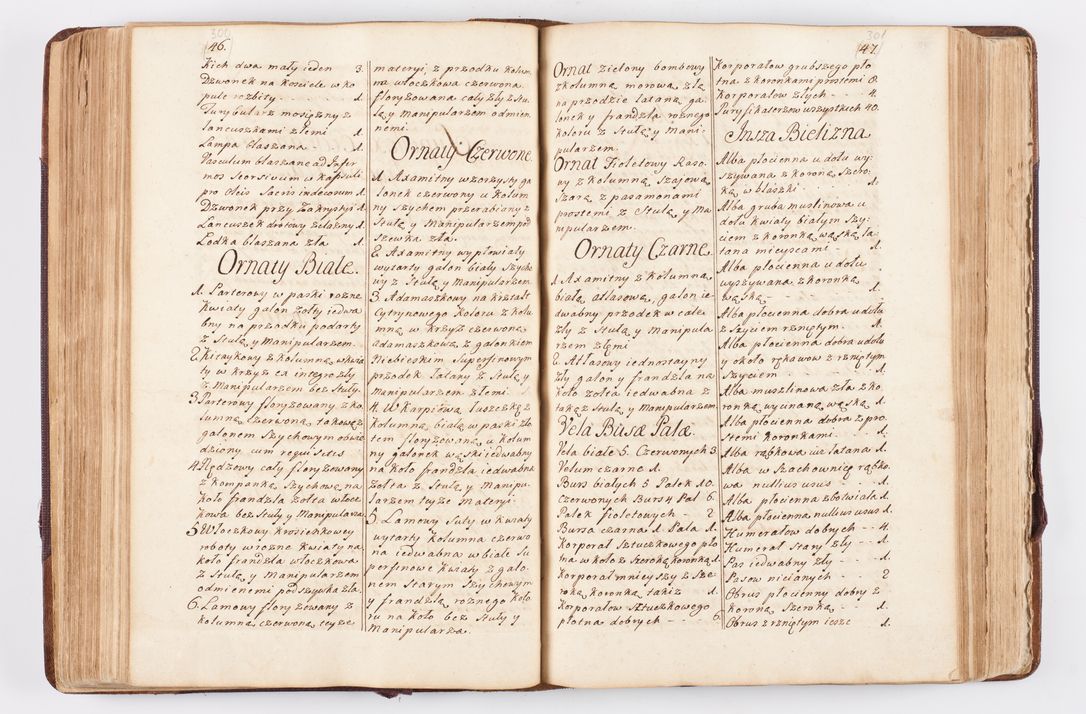 300
46.
Kich dwa mały ieden 3.
Dzwonek na Kościele w ko
pule rozbity 1.
Turybularz mosiązny z
łancuszkami złemi 1.
Lampa blaszana 1.
Vasculum blaszane ad Infer
mos Seorsivum w kapsuli
pro Oleis Sacris indecorum 1.
Dzwonek przy Zakrystyi 1.
Łancuszek drotowy żelazny 1.
Łodka blaszana zła 1.
Ornaty Białe.
1. Parterowy w paski rożne
kwiaty galon żołty iedwa
bny na przodku podarty
z Stułą y Manipularzem.
2. Kitaykowy z kolumną w kwia
ty w krzyż ex integro zły
z Manipularzem bez Stuły.
3. Parterowy floryzowany z ko
lumną czerwoną takowąż
galonem Szychowym obwie
dziony cum requisitis
4. Rędzowy cały floryzowany
z kompanką Szychową na
koło frandzla żołta włocz
kowa bez Stuły y Manipularza
5. Włoczkowy krosienkowey
roboty w rożne kwiaty na
koło frandzla włoczkowa
z Stułą y Manipularzem
odmienemi podszywka zła.
6. Lamowy floryzowany z
kolumną czerwoną teyże
materyi, z przodku kolum
na włoczkowa czerwona
floryzowana cały zły z Stu
łą y Manipularzem odmien
nemi.
Ornaty Czerwone
1. Axamitny wzorzysty ga
lonek czerwony u kolum
ny szychem przerabiany z
Stułą y Manipularzem pod
szewka zła.
2. Axamitny wypłowiały
wytarty galon biały Szycho
wy z Stułą y Manipularzem
3. Adamaszkowy na krztałt
Cytrynowego koloru z kolu
mną w krzyż czerwoną
adamaszkową z galonkiem
Niebieskim Superfinowym
przodek łatany z Stułą y
Manipularzem złemi.
4. W Karpiową łuszczkę z
kolumną białą w paski zło
tem floryzowaną u kolum
ny galonek wąski iedwabny
na koło frandzla iedwabna
żołta z Stułą y Manipu-
larzem teyże Materyi
5. Lamowy Suty w kwiaty
wytarty kolumna czerwo
na iedwabna w białe Su
perfinowe kwiaty z galo-
nem Starym Szychowym
y frandzlą rożnego kolo
ru na koło bez Stuły y
Manipularza.
301
47.
Ornat zielony bombowy
z kolumną morową złą
na przodzie łataną ga
lonek y frandzla rożnego
koloru z Stułą y Mani-
pularzem.
Ornat Fioletowy Raso-
wy z kolumną Szajową
Szarą z pasamonami
prostemi z Stułą y Ma
nipularzem.
Ornaty Czarne.
1. Axamitny z kolumną
białą atłasową, galon ie
dwabny przodek w całe
zły z Stułą y Manipula
rzem złemi
2. Atłasowy iednostayny
zły galon y frandzla na
koło żołta iedwabna z
takąż Stułą y Manipularzem
Vela Bursæ Palæ.
Vela białe 5. Czerwonych 3.
Velum czarne 1.
Burs białych 5 Palek 10.
Czerwonych Burs 4 Pal 6.
Palek fioletowych 2
Bursa czarna 1. Pala 1.
Korporał Sztuczkowego pło
tna w koło z Szeroką koronką 1.
Korporał mnieyszy z Sze
roką koronką takiż 1.
Korporałow Sztuczkowego
płotna dobrych 6.
Korporałow grubszego pło
tna z koronkami prostemi 8.
Korporałow złych 4.
Puryfikaterzow wszystkich 40.
Insza Bielizna
Alba płocienna u dołu wy-
szywana z koroną szero-
ką w blaszki 1.
Alba gruba muslinowa u
dołu kwiaty białym Szy-
ciem z koronką wąską ła-
tana mieyscami 1.
Alba płocienna u dołu
wyszywana z koronką
wąską 1.
Alba płocienna dobra u dołu
z Szyciem rzniętym. 1.
Alba płocienna dobra u dołu
y około rękawow z rzniętym
Szyciem 1.
Alba muszlinowa zła z ko
ronką wycinaną wąską 1.
Alba płocienna dobra z pro
stemi koronkami. 1.
Alba rąbkowa iuż łatana 1.
Alba w Szachownicę rąbko
wa nullius usus 1.
Alba płocienna zbotwiała 1.
Alba płocienna nullius usus 1.
Humerałow dobrych 4.
Humerał Stary zły 1.
Pas iedwabny zły 1.
Pasow nicianych 2
Obrus płocienny dobry z
koroną Szeroką 1.
Obrus z rzniętym iescze 1.